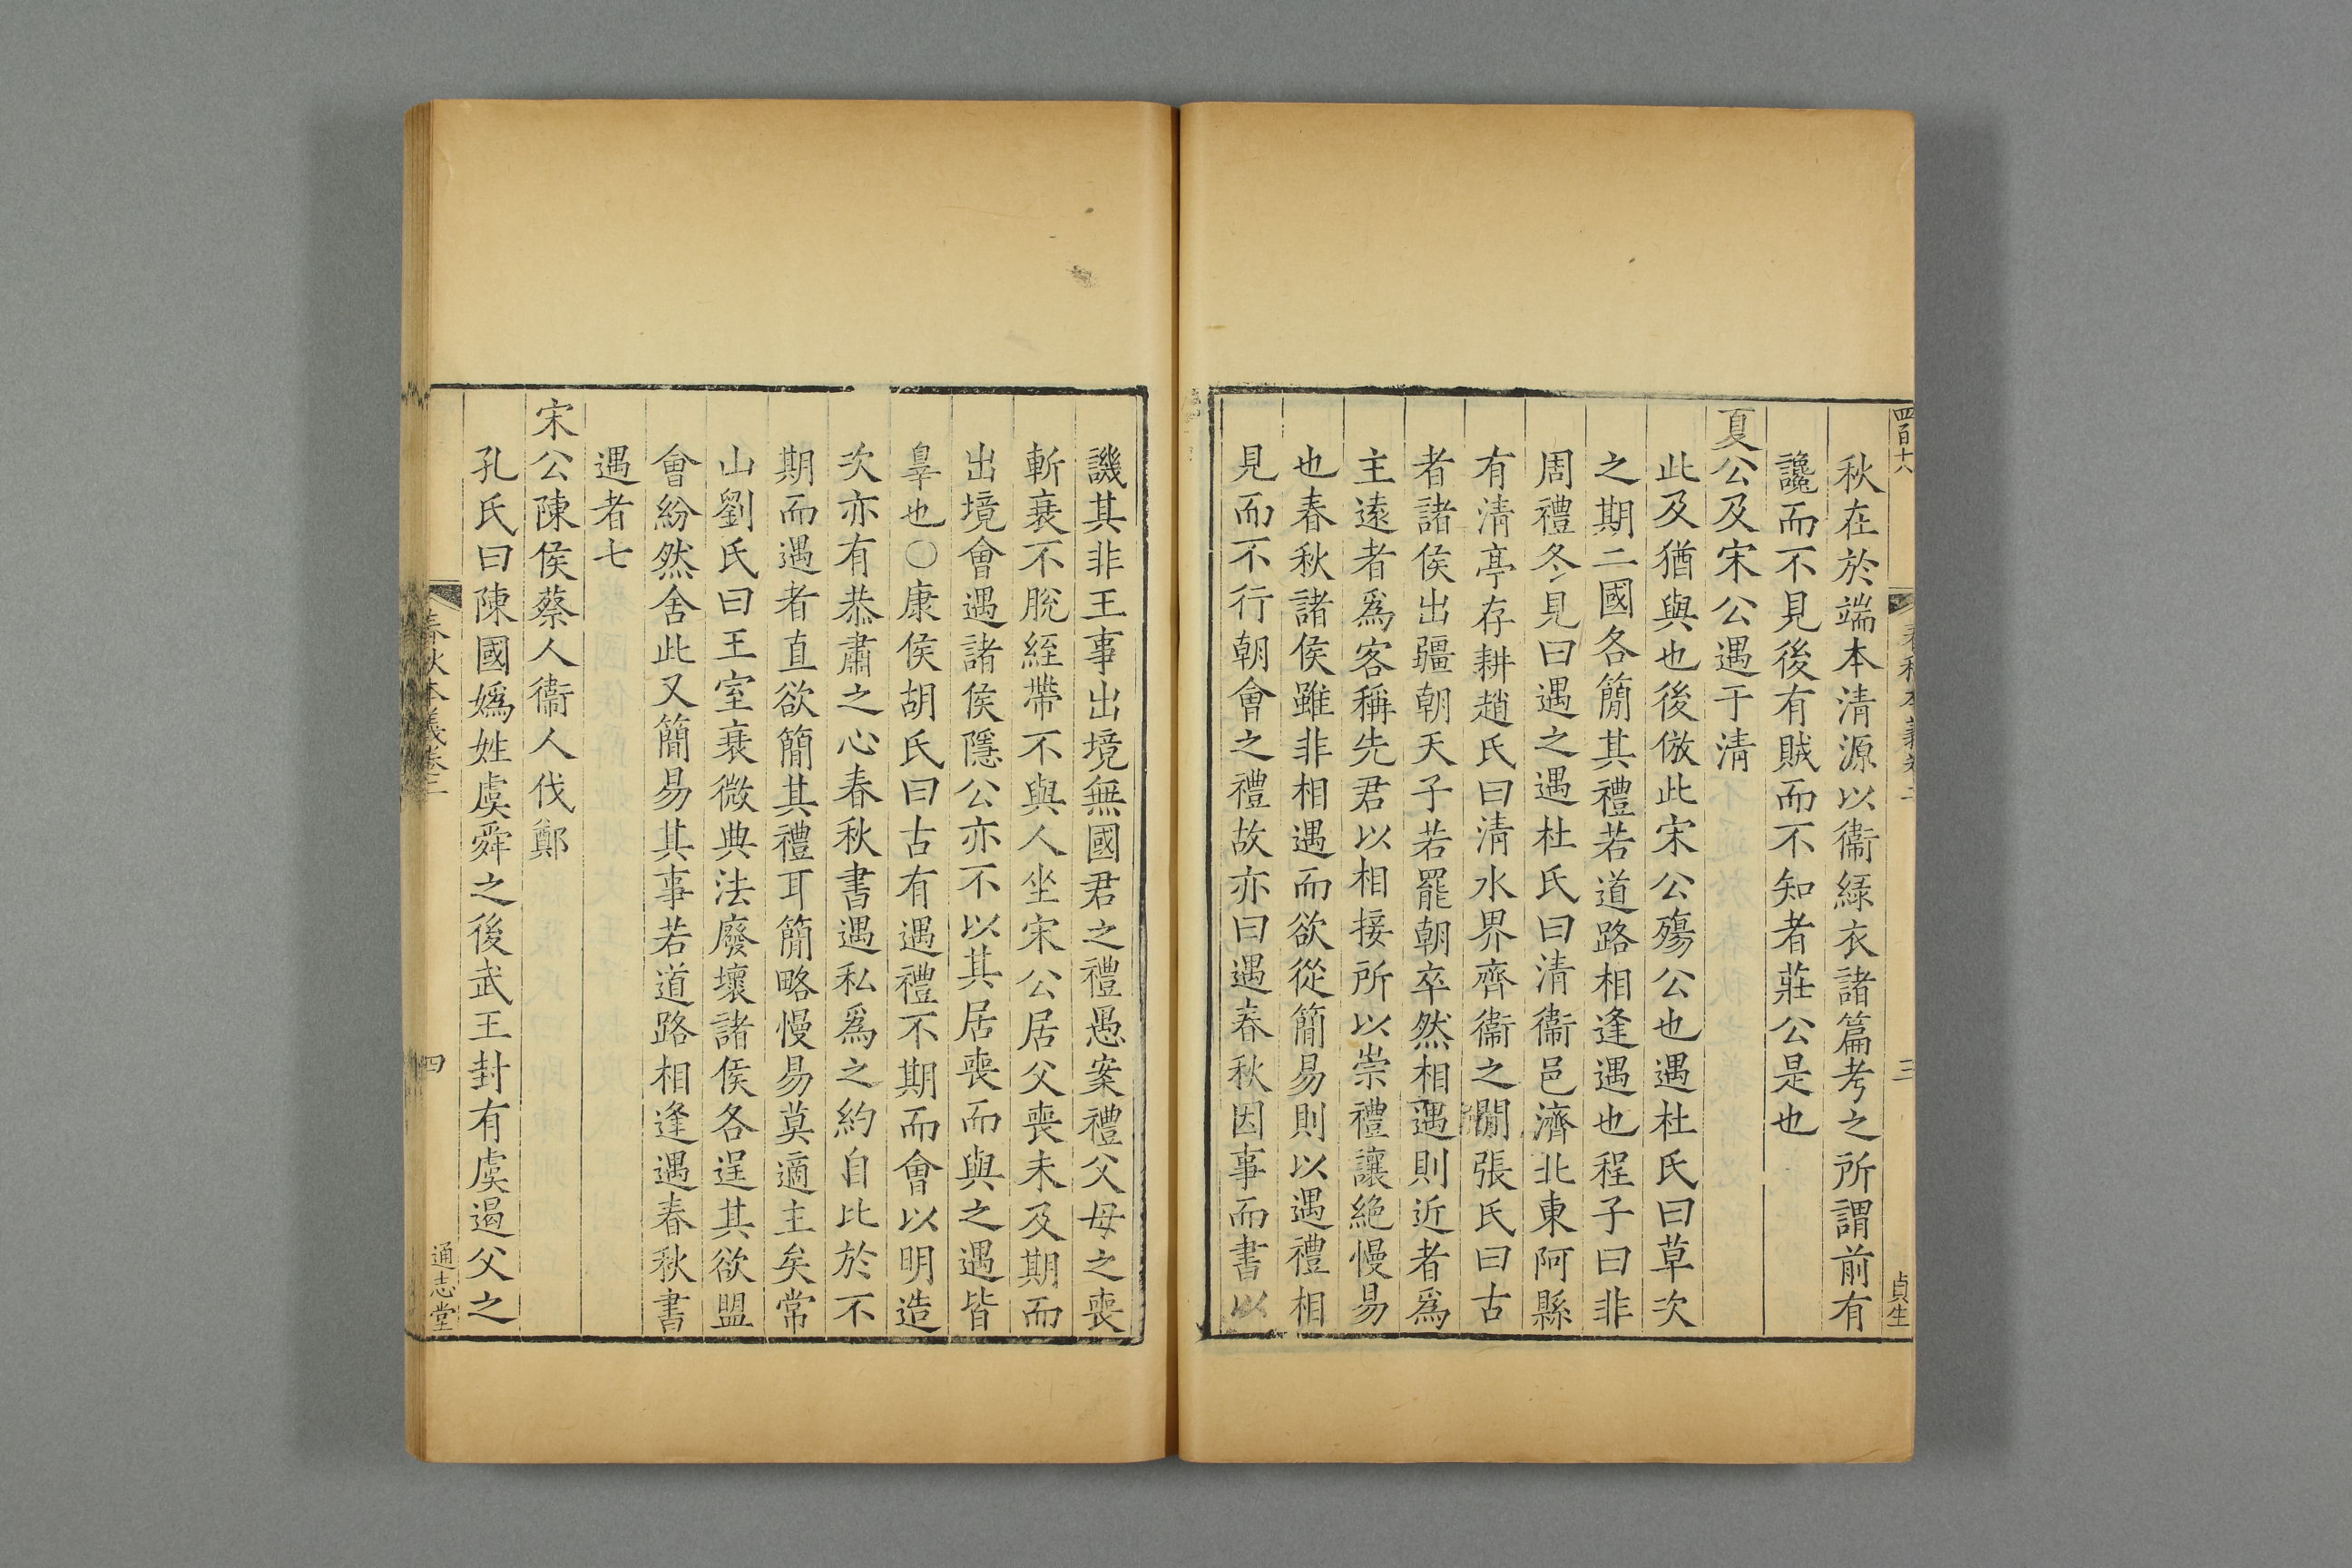 四百十八
春秋本義卷二
三
貞生
秋在於端本清源以衞綠衣諸篇考之所謂前有
讒而不見後有賊而不知者莊公是也
夏公及宋公遇于清
此及猶與也後倣此宋公殤公也遇杜氏曰草次
之期二國各簡其禮若道路相逢遇也程子曰非
周禮冬見曰遇之遇杜氏曰清衞邑濟北東阿縣
有清亭存耕趙氏曰清水界齊衞之閒張氏曰古
者諸侯出疆朝天子若罷朝卒然相遇則近者爲
主遠者爲客稱先君以相接所以崇禮讓絶慢易
也春秋諸侯雖非相遇而欲從簡易則以遇禮相
見而不行朝會之禮故亦曰遇春秋因事而書以
譏其非王事出境無國君之禮愚案禮父母之喪
斬衰不脫絰帶不與人坐宋公居父喪未及期而
出境會遇諸侯隱公亦不以其居喪而與之遇皆
辠也○康侯胡氏曰古有遇禮不期而會以明造
次亦有恭肅之心春秋書遇私爲之約自比於不
期而遇者直欲簡其禮耳簡略慢易莫適主矣常
山劉氏曰王室衰微典法廢壞諸侯各逞其欲盟
會紛然舍此又簡易其事若道路相逢遇春秋書
遇者七
宋公陳侯蔡人衞人伐鄭
孔氏曰陳國嬀姓虞舜之後武王封有虞遏父之
春秋本義卷二
四
通志堂